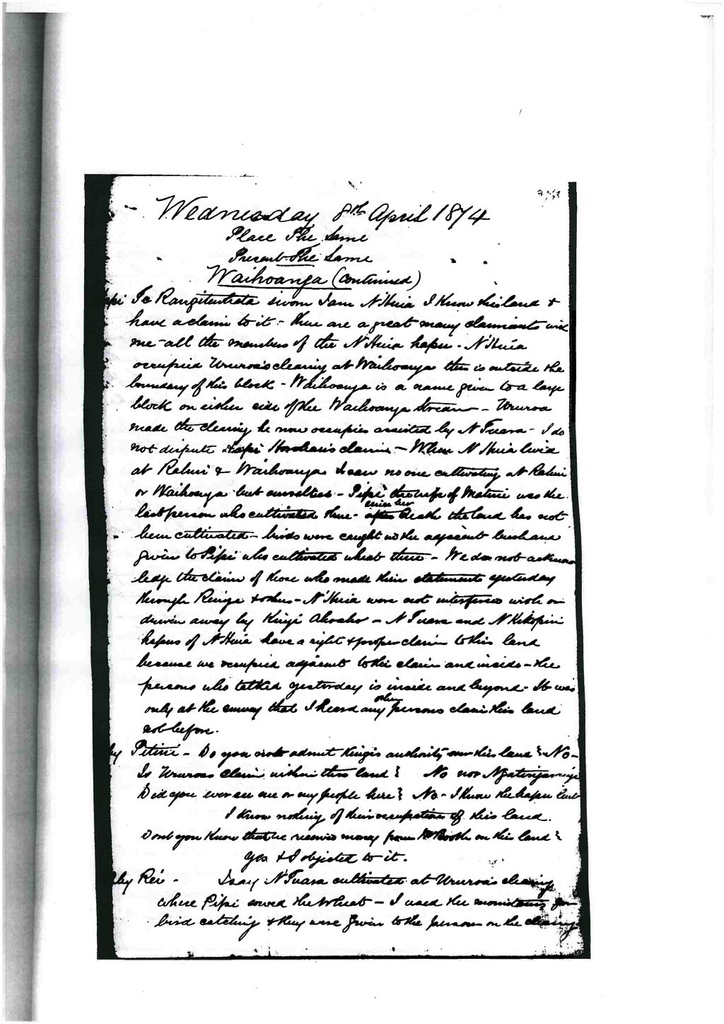 Wednesday 8th April 1874
Place The Same
Present The Same
Waihoanga (Continued)
Te Rangitutuata sworn I am N'Huia I know this land &
have a claim to it - there are a great many claimants with
me - all the members of the N'Huia hapu - N'Huia
occupied Ururoa's clearing at Waihoanga this is outside the
boundary of this block - Waihoanga is a name given to a large
block on either side of the Waihoanga Stream - Ururoa
made the clearing he now occupies assisted by N'Tuara - I do
not dispute claim - When N'Huia lived
at & Waihoanga I saw no one cultivating at
or Waihoanga but ourselves - Pipi the wife of Matene was the
last person who cultivated there - since her death the land has not
been cultivated - birds were caught in the adjacent bush and
given to Pipi who cultivated wheat there - We do not acknow
ledge the claim of those who made their statements yesterday
through & others - N'Huia were not interfered with or
driven away by Kingi - N'Tuara and N'Kikopiri
hapus of N'Huia have a right & proper claim to this land
because we occupied adjacent to this claim and inside - the
persons who talked yesterday is inside and beyond - It was
only at the survey that I heard any other persons claim this land
not before.
by - Do you not admit Kingi's authority over this land? No -
Is Ururoa's claim within this land? No nor
Did you ever see me or my people here? No - I know the hapu but
I know nothing of their occupation of this land.
Dont you know that he received money from Mr Booth on this land?
Yes & I objected to it.
by - I say N'Tuara cultivated at Ururoa's clearing
where Pipi sowed the wheat - I used the mountains for
bird catching & they were given to the persons on the clearing